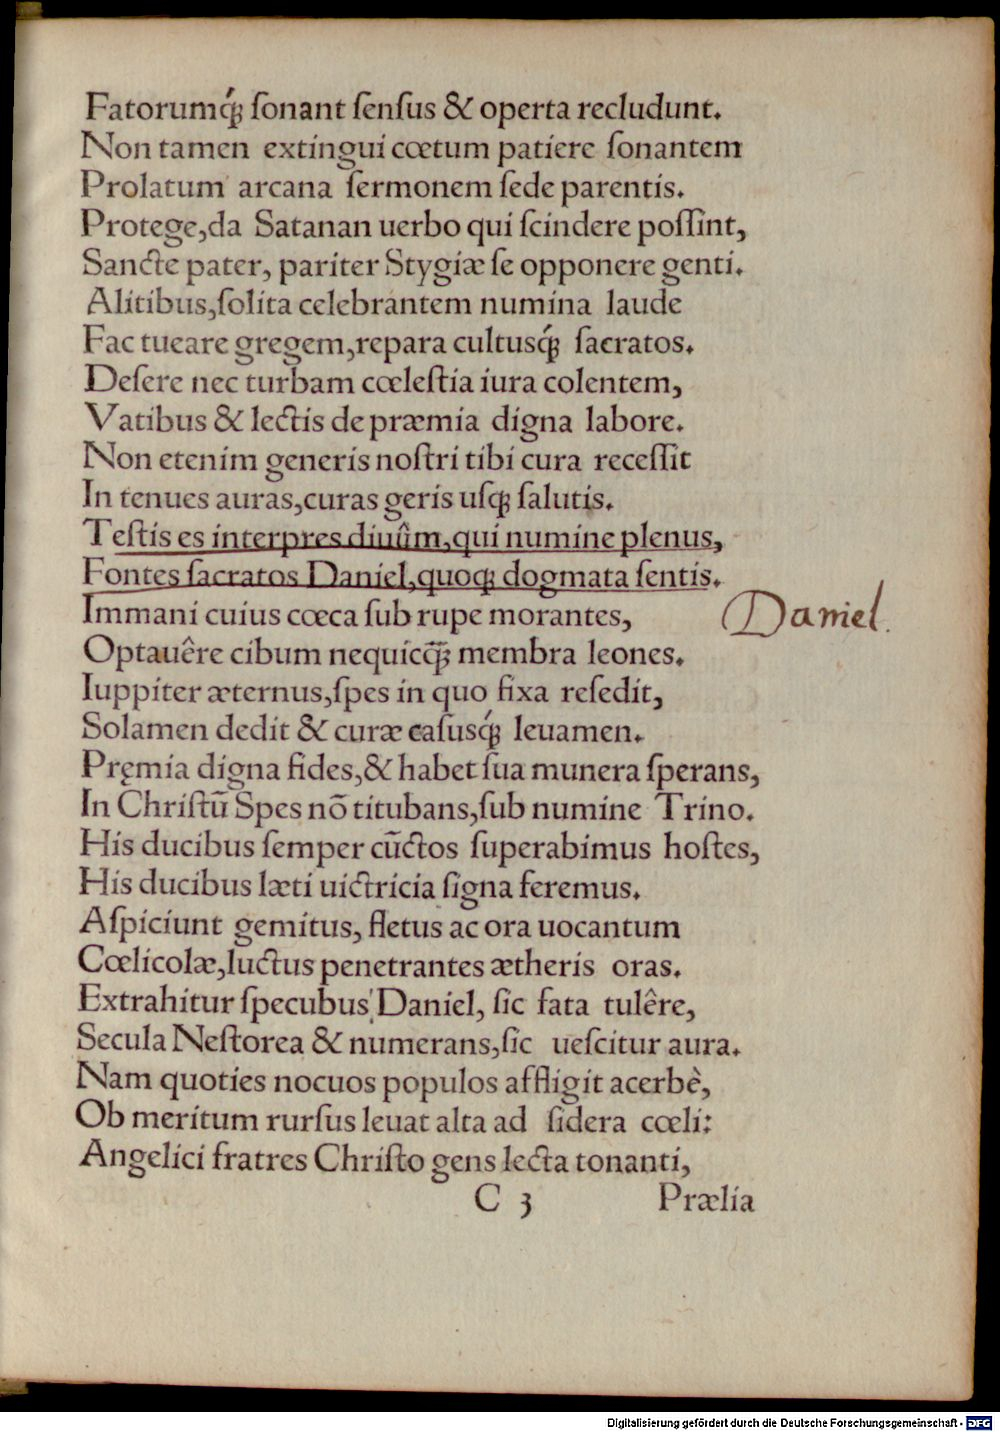 Fatorumq́ꝫ ſonant ſenſus & operta recludunt.
Non tamen extingui cœtum patiere ſonantem
Prolatum arcana ſermonem ſede parentis.
Protege,da Satanan uerbo qui ſcindere poſſint,
Sancte pater, pariter Stygiæ ſe opponere genti.
Alitibus,ſolita celebrantem numina laude
Fac tueare gregem,repara cultusq́ꝫ ſacratos.
Deſere nec turbam cœleſtia iura colentem,
Vatibus & lectis de præmia digna labore.
Non etenim generis noſtri tibi cura receſſit
In tenues auras,curas geris uſqꝫ ſalutis.
Teſtis es interpres diuûm,qui numine plenus,
Fontes ſacratos Daniel,quoqꝫ dogmata ſentis.
Immani cuius cœca ſub rupe morantes,
Daniel.
Optauêre cibum nequicq̃ꝫ membra leones.
Iuppiter æternus,ſpes in quo fixa reſedit,
Solamen dedit & curæ caſusq́ꝫ leuamen.
Pręmia digna fides,& habet ſua munera ſperans,
In Chriſtũ Spes nõ titubans,ſub numine Trino.
His ducibus ſemper cũctos ſuperabimus hoſtes,
His ducibus læti uictricia ſigna feremus.
Aſpiciunt gemitus, fletus ac ora uocantum
Cœlicolæ,luctus penetrantes ætheris oras.
Extrahitur ſpecubus Daniel, ſic fata tulêre,
Secula Neſtorea & numerans,ſic ueſcitur aura.
Nam quoties nocuos populos affligit acerbè,
Ob meritum rurſus leuat alta ad ſidera cœli:
Angelici fratres Chriſto gens lecta tonanti,
C 3 Prælia
Digitalisierung gefördert durch die Deutsche Forschungsgemeinschaft - DFG